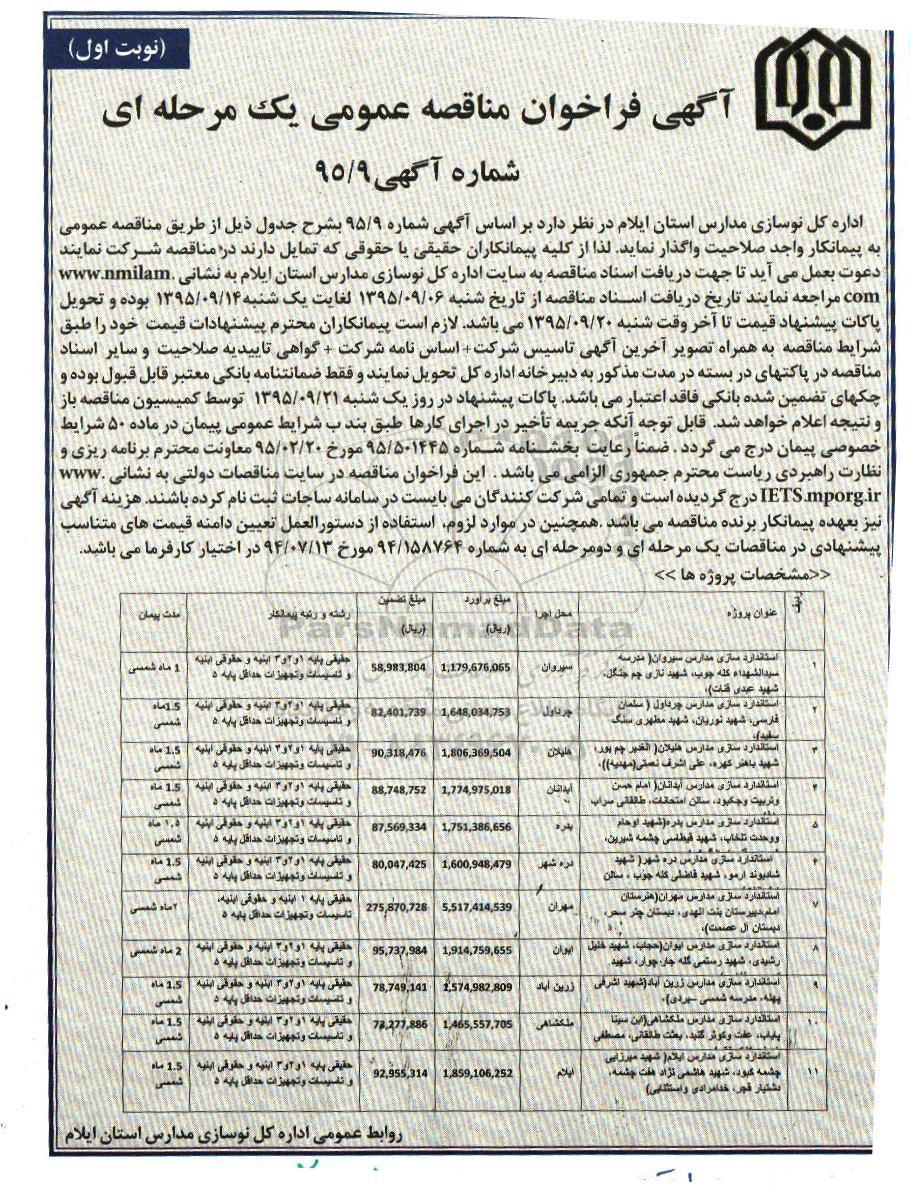 (نوبت اول)
آگهی فراخوان مناقصه عمومی یک مرحله ای
شماره آگهی۹۵/۹
اداره کل نوسازی مدارس استان ایلام در نظر دارد بر اساس آگهی شماره ۹۵/۹ بشرح جدول ذیل از طریق مناقصه عمومی
به پیمانکار واجد صلاحیت واگذار نماید. لذا از کلیه پیمانکاران حقیقی یا حقوقی که تمایل دارند در مناقصه شرکت نمایند
دعوت بعمل می آید تا جهت دریافت اسناد مناقصه به سایت اداره کل نوسازی مدارس استان ایلام به نشانی www.nmilam.
com مراجعه نمایند تاریخ دریافت اسناد مناقصه از تاریخ شنبه ۱۳۹۵/۰۹/۰۶ لغایت یک شنبه۱۳۹۵/۰۹/۱۴ بوده و تحویل
پاکات پیشنهاد قیمت تا آخر وقت شنبه ۱۳۹۵/۰۹/۲۰ می باشد. لازم است پیمانکاران محترم پیشنهادات قیمت خود را طبق
شرایط مناقصه به همراه تصویر آخرین آگهی تاسیس شرکت+ اساس نامه شرکت + گواهی تاییدیه صلاحیت و سایر اسناد
مناقصه در پاکتهای در بسته در مدت مذکور به دبیرخانه اداره کل تحویل نمایند و فقط ضمانتنامه بانکی معتبر قابل قبول بوده و
چکهای تضمین شده بانکی فاقد اعتبار می باشد. پاکات پیشنهاد در روز یک شنبه ۱۳۹۵/۰۹/۲۱ توسط کمیسیون مناقصه باز
و نتیجه اعلام خواهد شد. قابل توجه آنکه جریمه تأخیر در اجرای کارها طبق بند ب شرایط عمومی پیمان در ماده ۵۰ شرایط
خصوصی پیمان درج می گردد . ضمناً رعایت بخشنامه شماره ۹۵/۵۰۱۴۴۵ مورخ ۹۵/۰۲/۲۰ معاونت محترم برنامه ریزی و
نظارت راهبردی ریاست محترم جمهوری الزامی می باشد . این فراخوان مناقصه در سایت مناقصات دولتی به نشانی www.
IETS.mporg.ir درج گردیده است و تمامی شرکت کنندگان می بایست در سامانه ساجات ثبت نام کرده باشند. هزینه آگهی
نیز بعهده پیمانکار برنده مناقصه می باشد .همچنین در موارد لزوم، استفاده از دستورالعمل تعیین دامنه قیمت های متناسب
پیشنهادی در مناقصات یک مرحله ای و دومرحله ای به شماره ۹۴/۱۵۸۷۶۴ مورخ ۹۴/۰۷/۱۳ در اختیار کارفرما می باشد.
<<مشخصات پروژه ها >>
ردیف عنوان پروژه محل اجرا مبلغ برآورد (ریال) مبلغ تضمین (ریال) رشته و رتبه پیمانکار مدت پیمان
۱ استاندارد سازی مدارس سیروان( مدرسه سیدالشهداء کله جوب، شهید نازی چم جنگل، شهید عبدی قنات)، سیروان 1,179,676,065 58,983,804 حقیقی پایه ۱و۲و۳ ابنیه و حقوقی ابنیه و تاسیسات وتجهیزات حداقل پایه ۵ 1 ماه شمسی
۲ استاندارد سازی مدارس چرداول ( سلمان فارسی، شهید نوریان، شهید مطهری سنگ سفید)، چرداول 1,648,034,753 82,401,739 حقیقی پایه ۱و۲و۳ ابنیه و حقوقی ابنیه و تاسیسات وتجهیزات حداقل پایه ۵ 1.5ماه شمسی
۳ استاندارد سازی مدارس هلیلان( الغدیر چم پور، شهید باهنر کهره، علی اشرف نعمتی(مهدیه))، هلیلان 1,806,369,504 90,318,476 حقیقی پایه ۱و۲و۳ ابنیه و حقوقی ابنیه و تاسیسات وتجهیزات حداقل پایه ۵ 1.5 ماه شمسی
۴ استاندارد سازی مدارس آبدانان( امام حسن وتربیت وجکبود، سالن امتحانات، طالقانی سراب آبدانان 1,774,975,018 88,748,752 حقیقی پایه ۱و۲و۳ ابنیه و حقوقی ابنیه و تاسیسات وتجهیزات حداقل پایه ۵ 1.5 ماه شمسی
۵ استاندارد سازی مدارس بدره(شهید اوحام ووحدت تلخاب، شهید قیطاسی چشمه شیرین، بدره 1,751,386,656 87,569,334 حقیقی پایه ۱و۲و۳ ابنیه و حقوقی ابنیه و تاسیسات وتجهیزات حداقل پایه ۵ ۱.۵ ماه شمسی
۶ استاندارد سازی مدارس دره شهر( شهید شادیوند ارمو، شهید فاضلی کله جوب ، سالن دره شهر 1,600,948,479 80,047,425 حقیقی پایه ۱و۲و۳ ابنیه و حقوقی ابنیه و تاسیسات وتجهیزات حداقل پایه ۵ 1.5 ماه شمسی
۷ استاندارد سازی مدارس مهران(هنرستان امام،دبیرستان بنت الهدی، دبستان چنر سحر، دبستان ال عصمت)، مهران 5,517,414,539 275,870,728 حقیقی پایه ۱ ابنیه و حقوقی ابنیه، تاسیسات وتجهیزات حداقل پایه ۵ ۲ماه شمسی
۸ استاندارد سازی مدارس ایوان(حجاب، شهید خلیل رشیدی، شهید رستمی گله جار، چوار، شهید ایوان 1,914,759,655 95,737,984 حقیقی پایه ۱و۲و۳ ابنیه و حقوقی ابنیه و تاسیسات وتجهیزات حداقل پایه ۵ 2 ماه شمسی
۹ استاندارد سازی مدارس زرین آباد(شهید اشرفی پهله، مدرسه شمسی سبردی)، زرین آباد 1,574,982,809 78,749,141 حقیقی پایه ۱و۲و۳ ابنیه و حقوقی ابنیه و تاسیسات وتجهیزات حداقل پایه ۵ 1.5 ماه شمسی
۱۰ استاندارد سازی مدارس ملکشاهی(ابن سینا پاپاب، عفت وکوثر گنبد، بعثت طالقانی، مصطفی ملکشاهی 1,465,557,705 73,277,886 حقیقی پایه ۱و۲و۳ ابنیه و حقوقی ابنیه و تاسیسات وتجهیزات حداقل پایه ۵ 1.5 ماه شمسی
۱۱ استاندارد سازی مدارس ایلام( شهید میرزایی چشمه کبود، شهید هاشمی نژاد هفت چشمه، دشتیار فجر، خدامرادی واستثنایی) ایلام 1,859,106,252 92,955,314 حقیقی پایه ۱و۲و۳ ابنیه و حقوقی ابنیه و تاسیسات وتجهیزات حداقل پایه ۵ 1.5 ماه شمسی
روابط عمومی اداره کل نوسازی مدارس استان ایلام
ParsNamadData